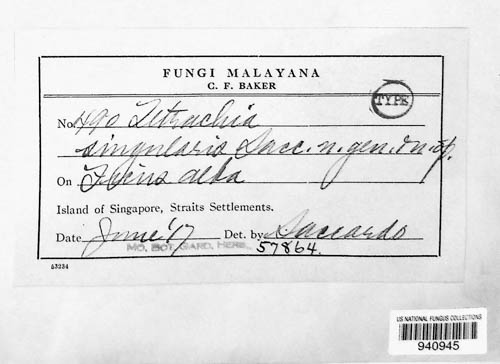 FUNGI MALAYANA
C. F. BAKER
TYPE
No. 490 Tetrachia
singularis Sacc. n. gen. & n. sp.
On Ficus alba
Island of Singapore, Straits Settlements.
Date June '17 Det. by Saccardo
MO. BOT. GARD. HERB.
57864.
63234
US NATIONAL FUNGUS COLLECTIONS
940945